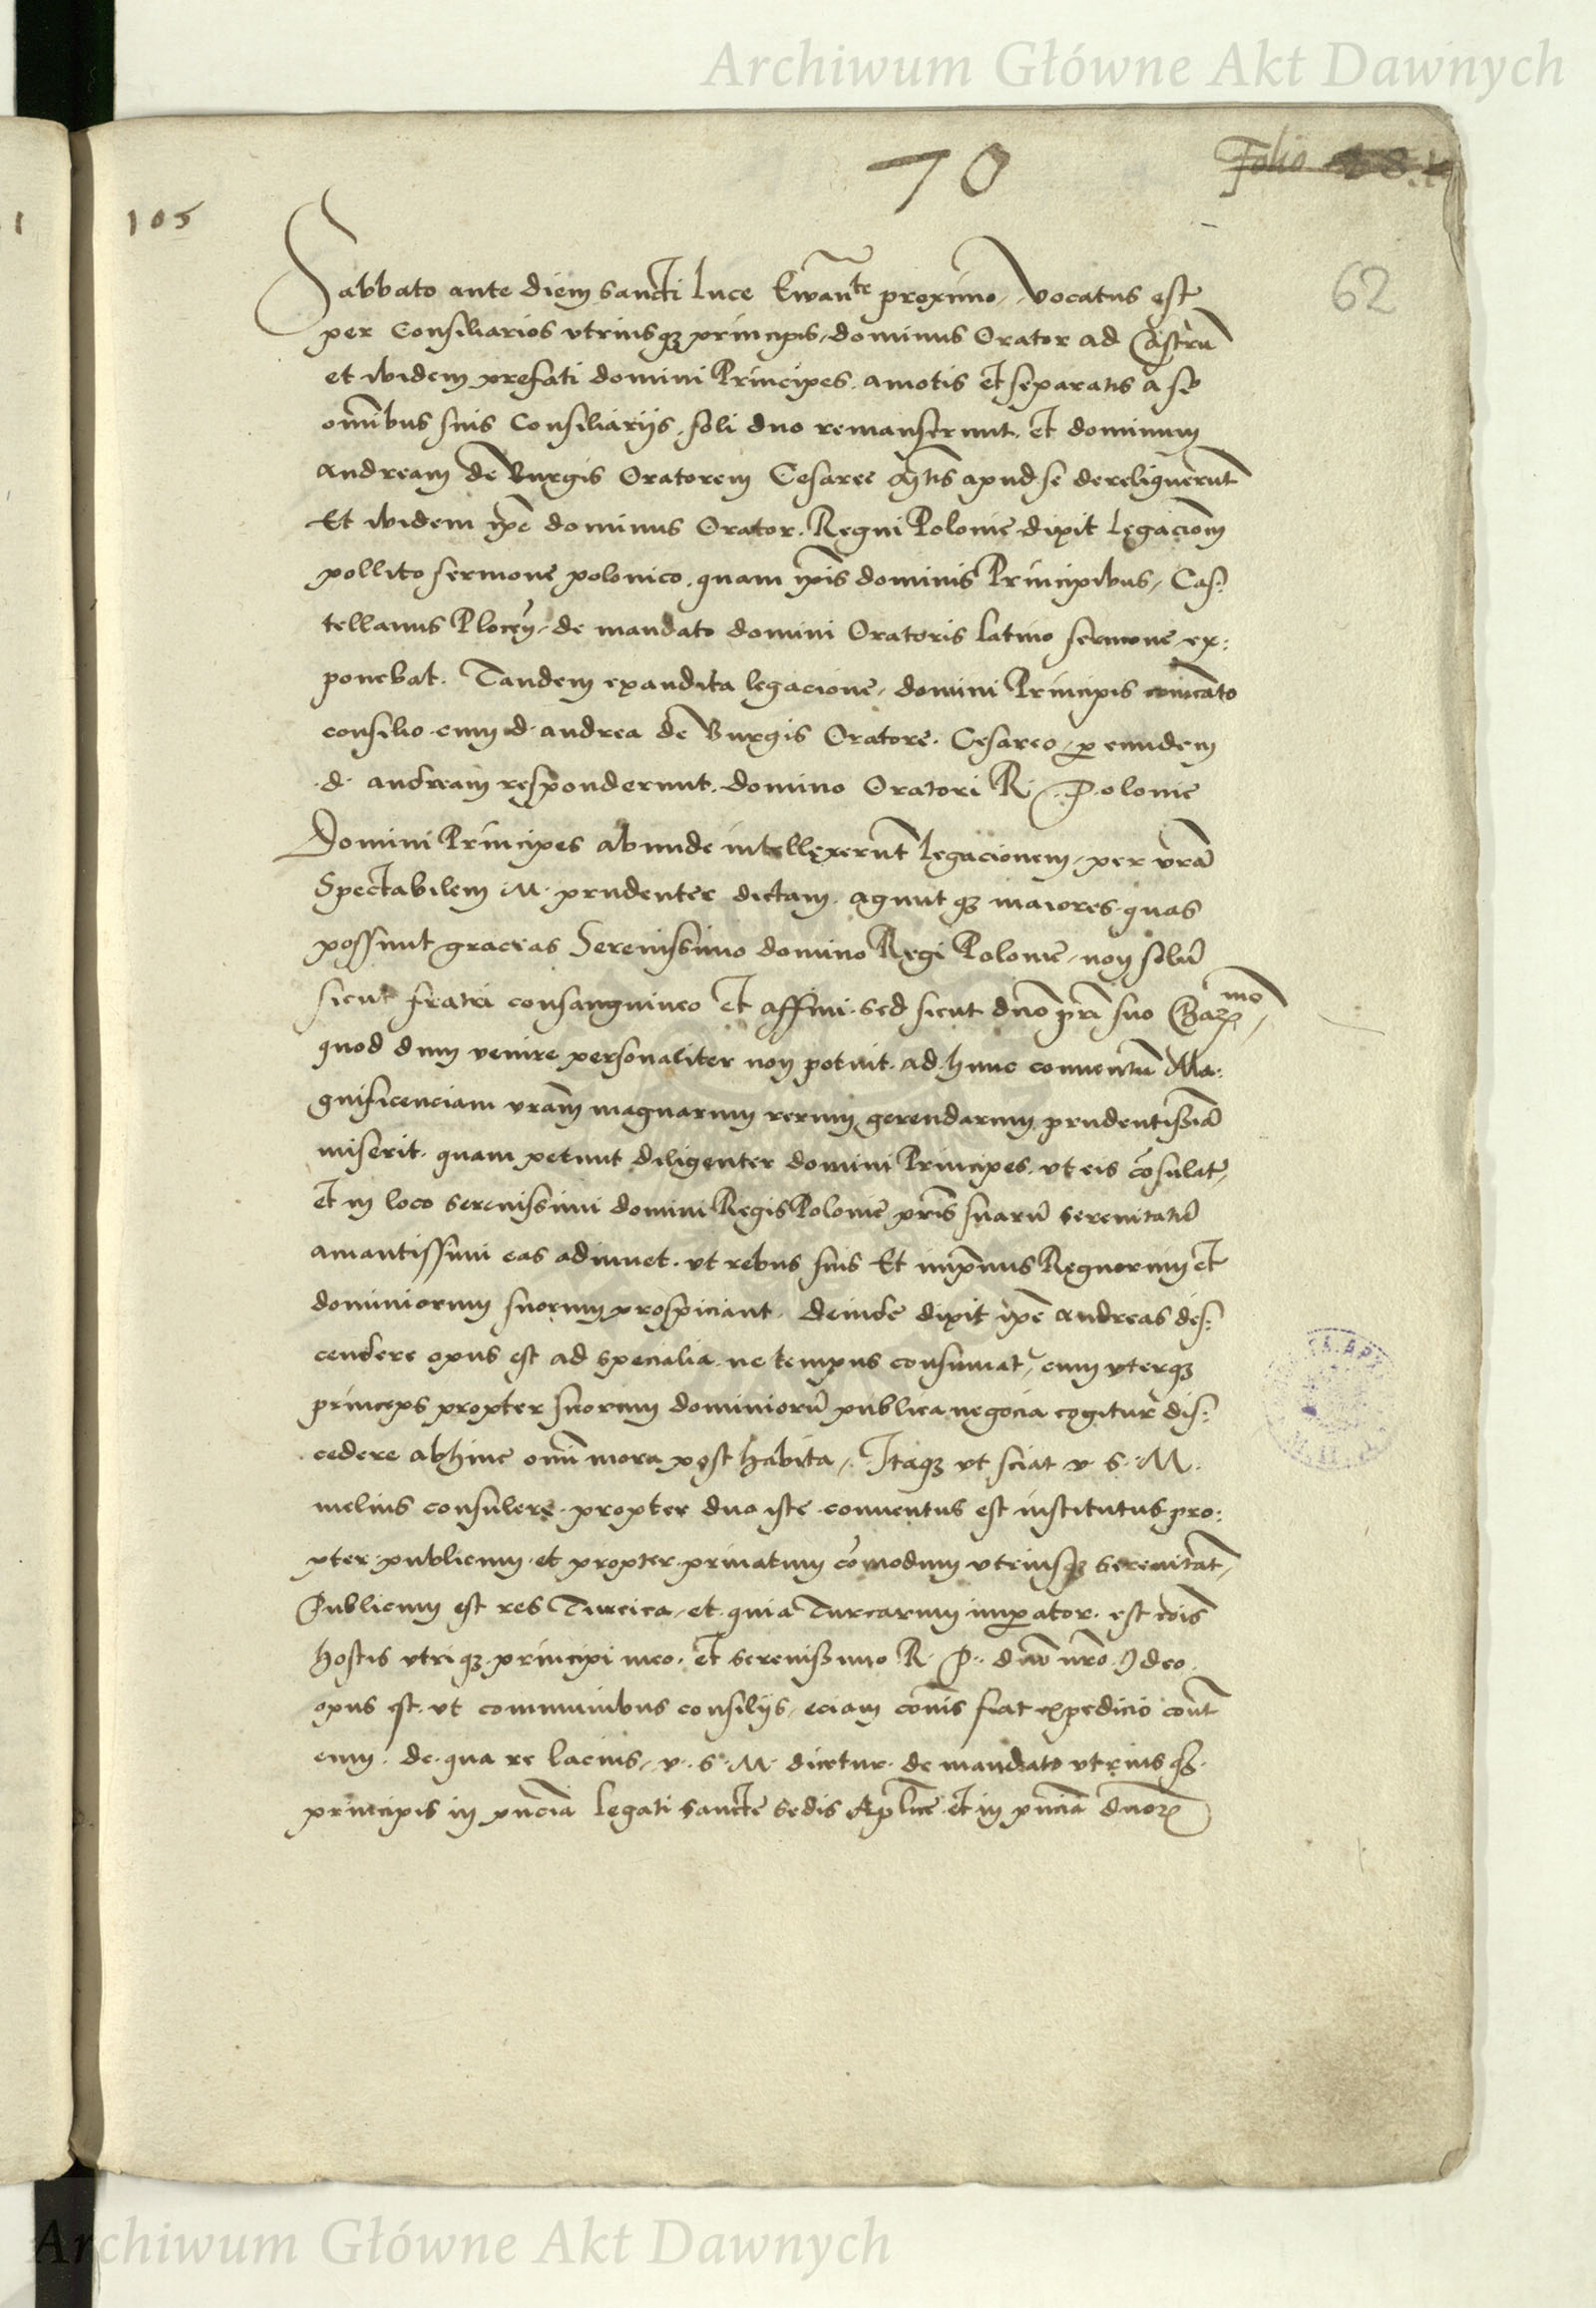 Archiwum Główne Akt Dawnych
70
Folio
105
62
Sabbato ante diem sancti luce Ewante proximo, vocatus est
per Consiliarios vtriusq3 principis, dominus Orator ad Castru
et ibidem prefati domini Principes. amotis et separatis a se
omibus suis Consiliarijs. soli duo remanserunt. et dominum
andream de Burgis Oratorem Cesaree mtis apud se dereliquerut
Et ibidem ipe dominus Orator. Regni Polonie dixit legaciom
pollito sermone polonico. quam ipis dominis Principibus, Cas:
tellanus Plocen, de mandato domini Oratoris latino sermone ex:
ponebat. Tandem exaudita legacione, domini Principis comicato
consilio cum d. andrea de Burgis Oratore. Cesareo, p eundem
.d. andream responderunt. domino Oratori R. P.olonie
Domini Principes abunde intellexerunt legacionem, per vram
Spectabilem M. prudenter dictam. agunt q3 maiores quas
possunt gracias Serenissimo domino Regi Polonie, non solu
sicut fratri consanguineo et affini. sed sicut dno pri suo Charmo,
quod dum venire personaliter non potuit. ad hunc conuentu Ma:
gnificenciam vram magnarum rerum gerendarum prudentissia
miserit. quam petunt diligenter domini Principes. vt eis cosulat,
et in loco serenissimi domini Regis Polonie pris suaru serenitatu
amantissimi eas adiuuet. vt rebus suis Et inprimis Regnorum et
dominiorum suorum prospiciant. deinde dixit ipe andreas des:
cendere opus est ad specialia. ne tempus consumat, cum vterq3
princeps propter suorum dominioru publica negocia cogitur dis:
cedere abhinc omi mora post habita, Itaq3 vt sciat v. s. M.
melius consulere. propter duo iste conuentus est institutus. pro:
pter publicum. et propter priuatum comodum vtriusq3 serenitat,
Publicum est res Turcica, et quia Turcarum imperator. est cois
hostis vtriq3 principi meo. et serenissimo R. P. dno nro. Ideo
opus est. vt communibus consilijs, eciam comis fiat expedicio cont
eum. de qua re lacius, v. s. M. dicetur. de mandato vtriusq3.
principis in pncia legati sancte sedis Aplice. et in pncia dnor
Archiwum Główne Akt Dawnych